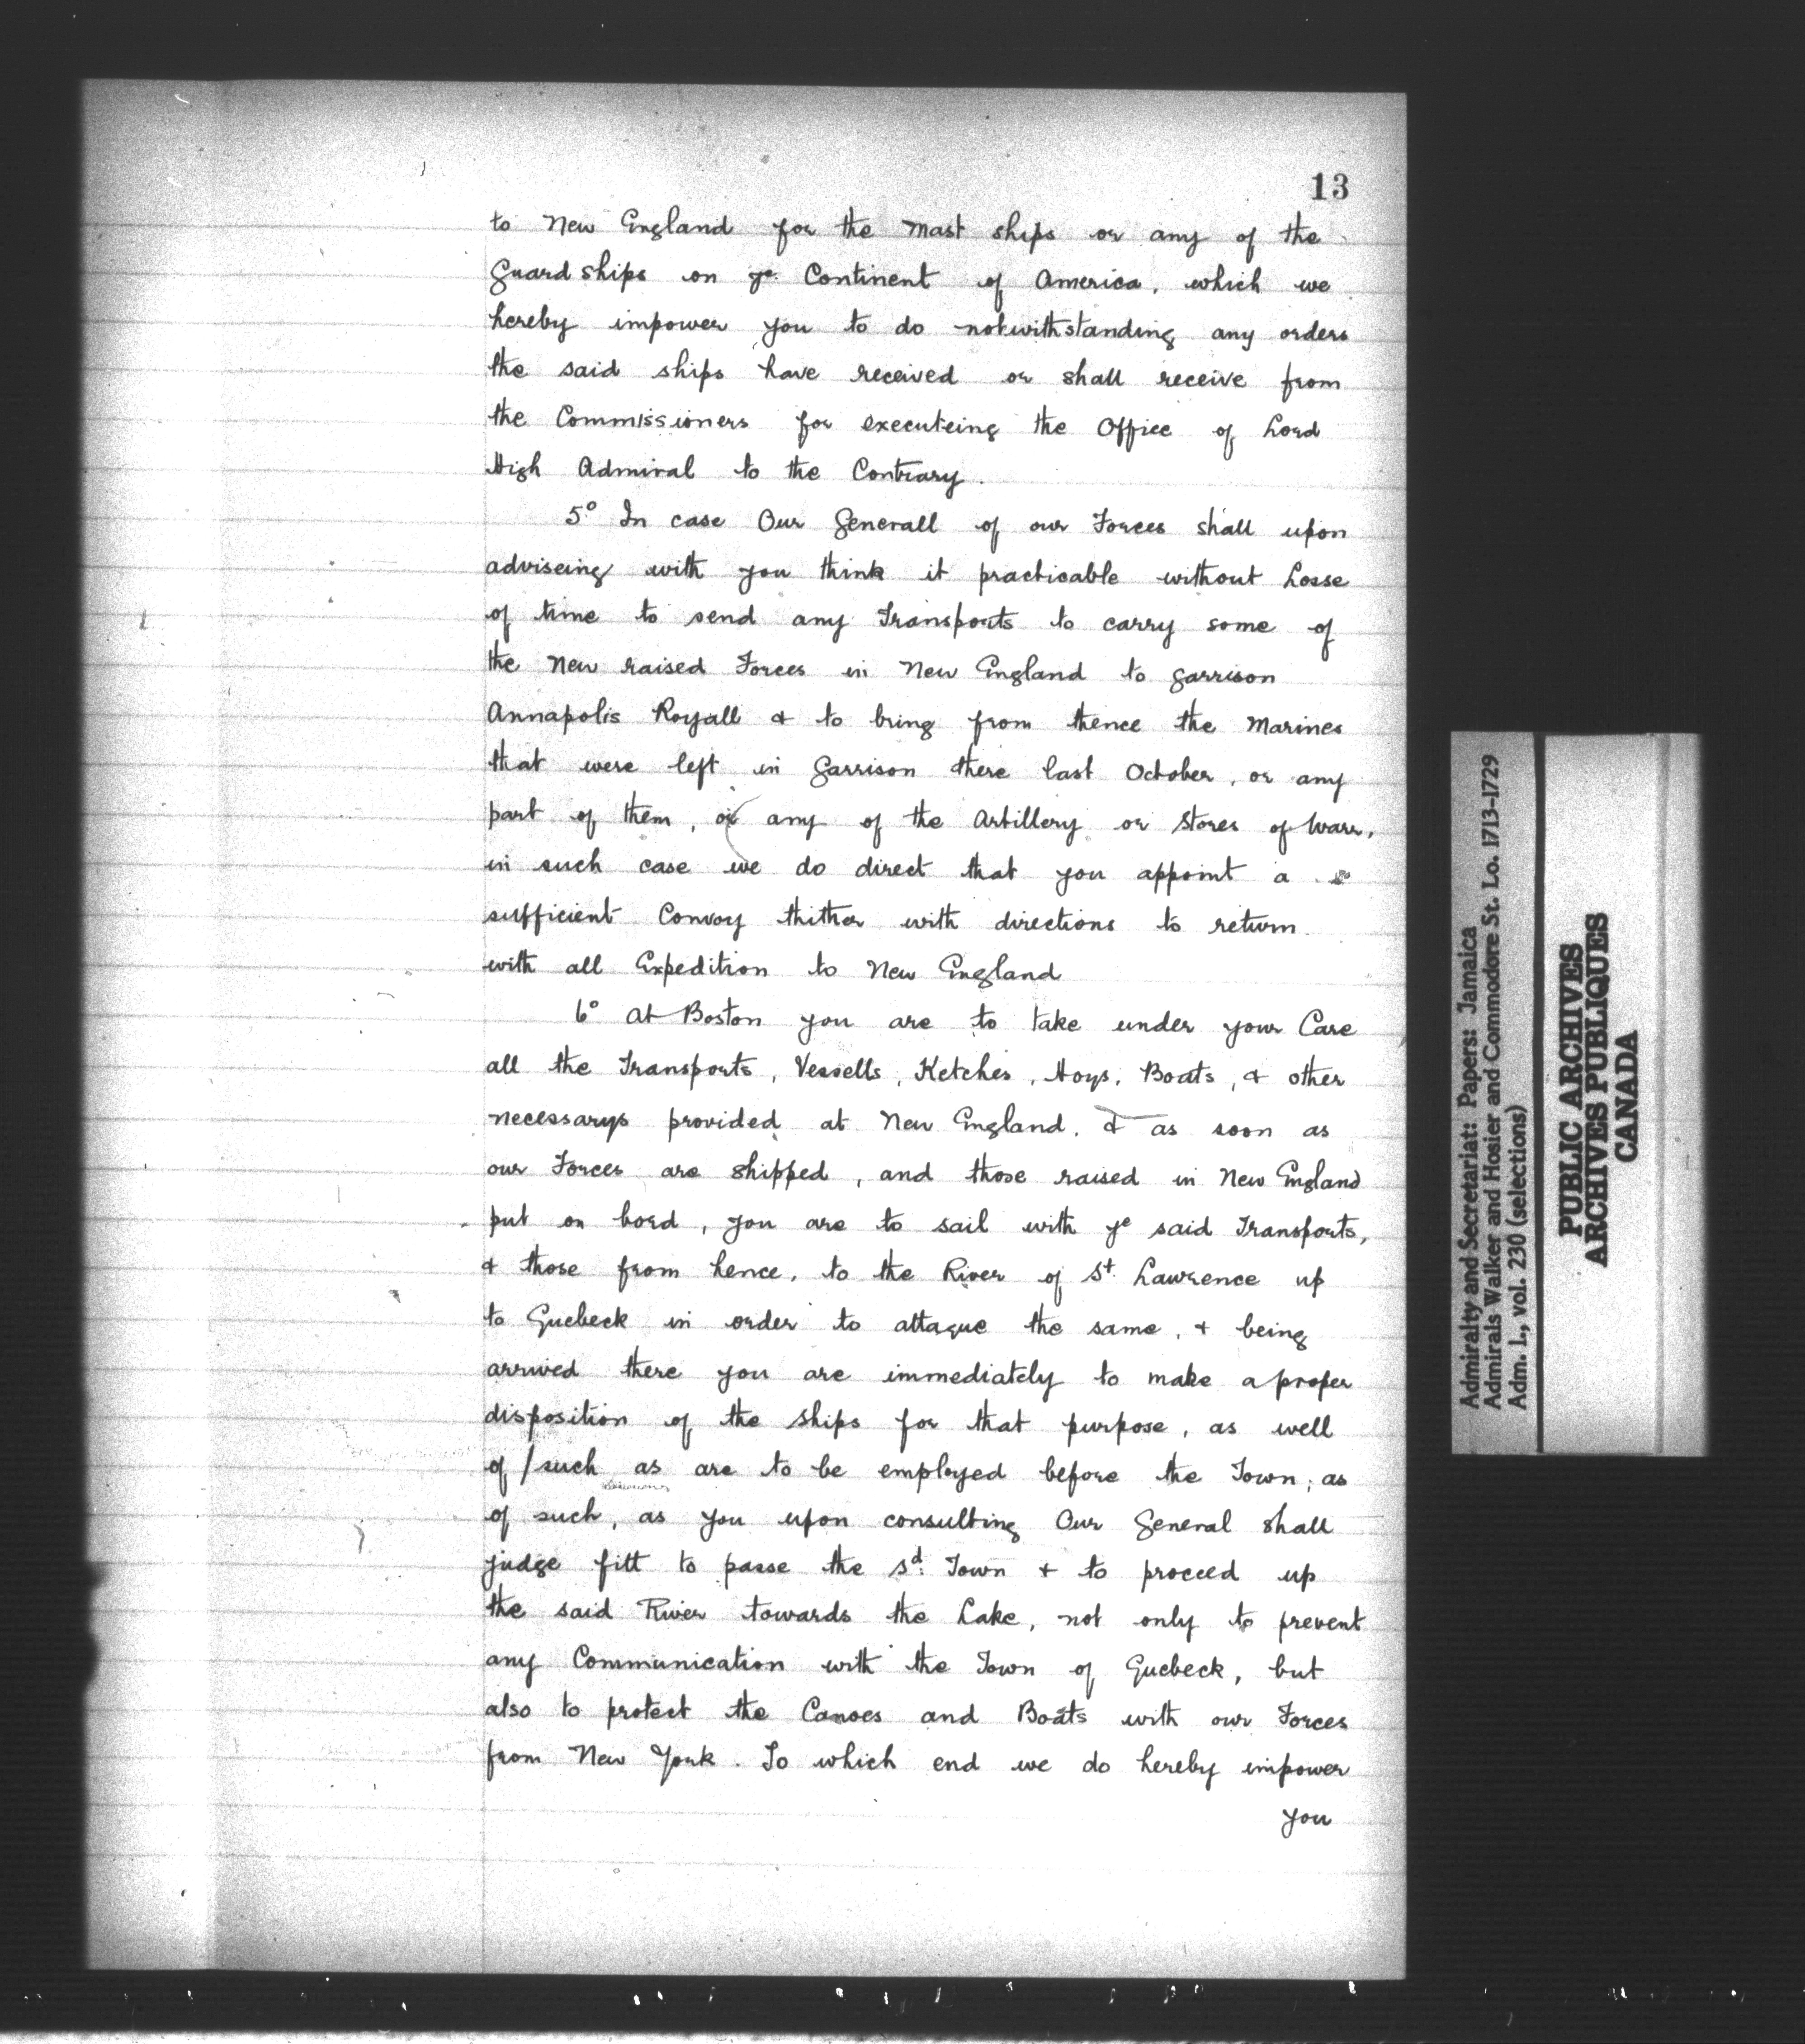 13
to New England for the Mast ships or any of the
Guard ships on ye. Continent of America, which we
hereby impower you to do notwithstanding any orders
the said ships have received or shall receive from
the Commissioners for executeing the Office of Lord
High Admiral to the Contrary.
5° In case Our Generall of our Forces shall upon
adviseing with you think it practicable without Losse
of time to send any Transports to carry some of
the New raised Forces in New England to garrison
Annapolis Royall & to bring from thence the Marines
that were left in Garrison there last October, or any
part of them, or any of the Artillery or Stores of Warr,
in such case we do direct that you appoint a
sufficient Convoy thither with directions to return
with all Expedition to New England
6° At Boston you are to take under your Care
all the Transports, Vessells, Ketches, Hoys, Boats, & other
necessarys provided at New England, & as soon as
our Forces are shipped, and those raised in New England
put on bord, you are to sail with ye said Transports,
& those from hence, to the River of St. Lawrence up
to Quebeck in order to attaque the same, & being
arrived there you are immediately to make a proper
disposition of the ships for that purpose, as well
of / such as are to be employed before the Town; as
of such, as you upon consulting Our General shall
judge fitt to passe the sd. Town & to proceed up
the said River towards the Lake, not only to prevent
any Communication with the Town of Quebeck, but
also to protect the Canoes and Boats with our Forces
from New York. To which end we do hereby impower
you
Admiralty and Secretariat: Papers: Jamaica
Admirals Walker and Hosier and Commodore St. Lo. 1713-1729
Adm. 1., vol. 230 (selections)
PUBLIC ARCHIVES
ARCHIVES PUBLIQUES
CANADA